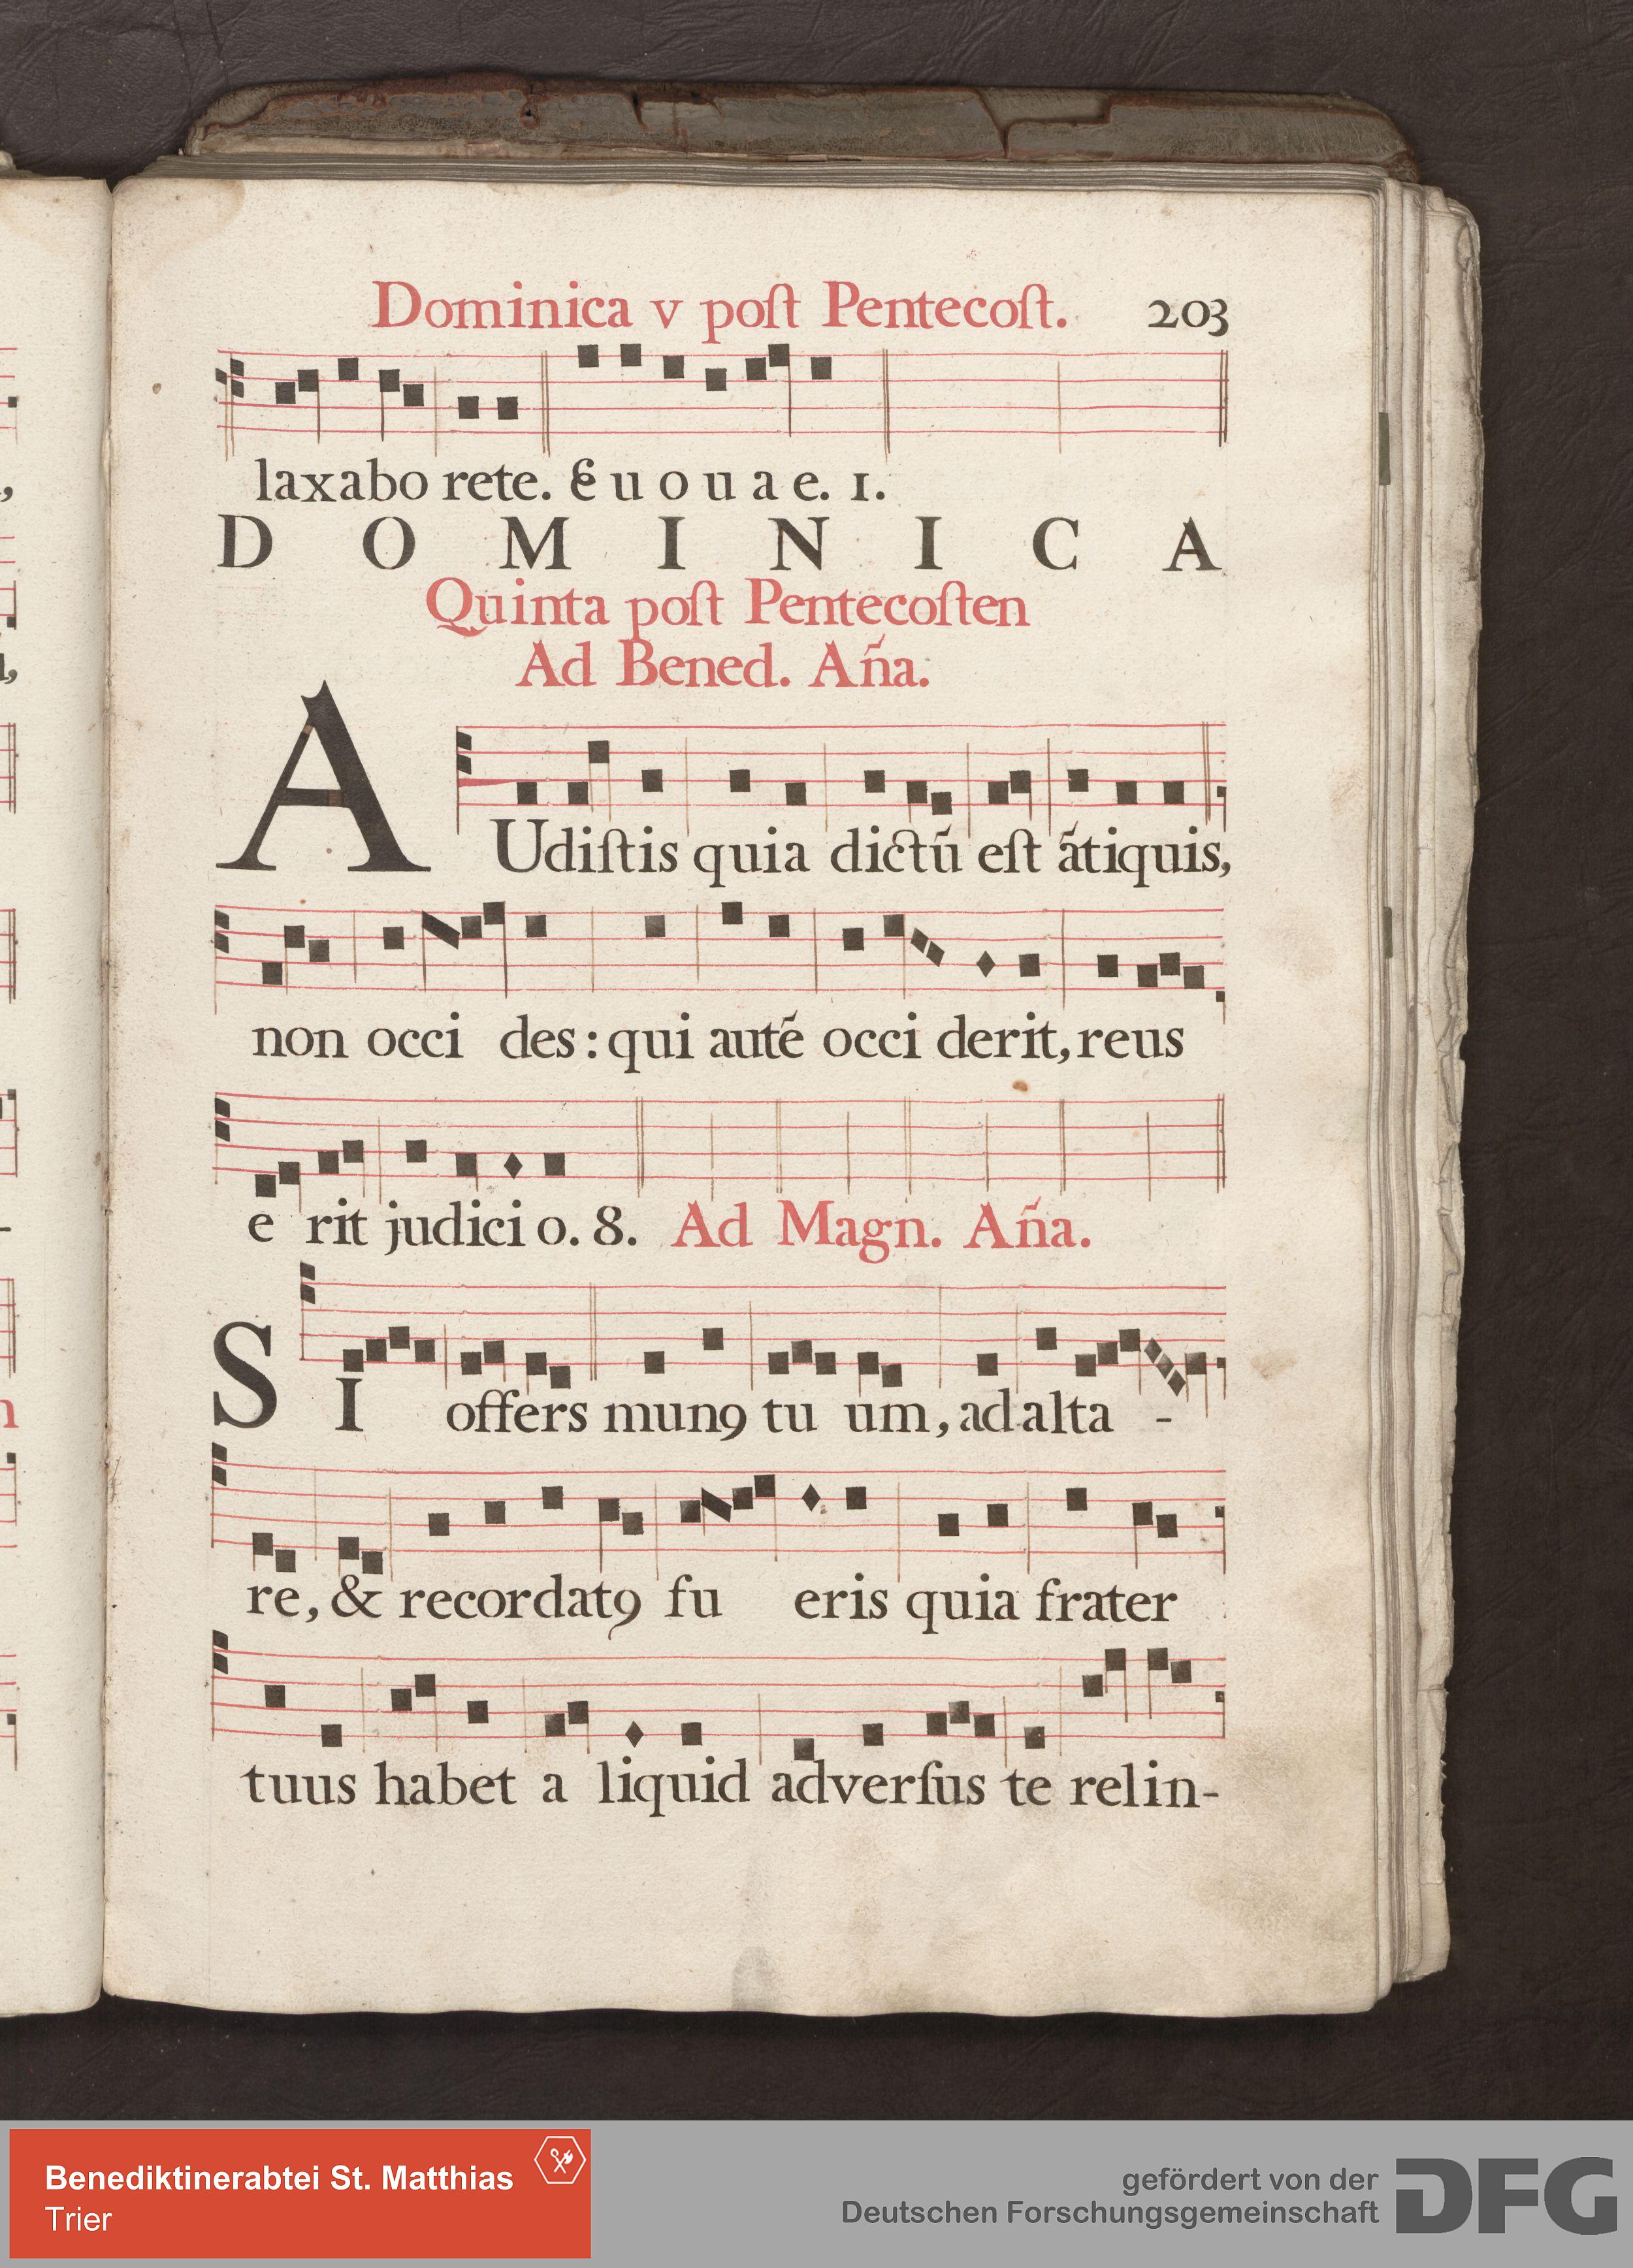 Dominica v poſt Pentecoſt. 203
laxabo rete. E u o u a e. 1.
D O M I N I C A
Quinta poſt Pentecoſten
Ad Bened. Aña.
AUdiſtis quia dictũ eſt ãtiquis,
non occi des: qui autẽ occi derit, reus
e rit judici o. 8. Ad Magn. Aña.
SI offers munꝰ tu um, ad alta -
re, & recordatꝰ fu eris quia frater
tuus habet a liquid adverſus te relin-
Benediktinerabtei St. Matthias
Trier
gefördert von der
Deutschen Forschungsgemeinschaft
DFG